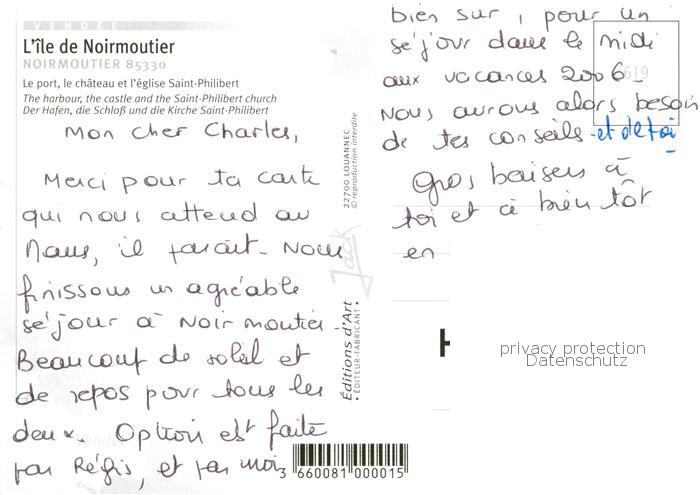 VENDÉE
L'île de Noirmoutier
NOIRMOUTIER 85330
Le port, le château et l'église Saint-Philibert
The harbour, the castle and the Saint-Philibert church
Der Hafen, die Schloß und die Kirche Saint-Philibert
Mon cher Charles,
Merci pour ta carte
qui nous attend au
Mans, il paraît. Nous
finissons un agréable
séjour à Noirmoutier.
Beaucoup de soleil et
de repos pour tous les
deux. Option est faite
par Régis, et par moi
bien sur, pour un
séjour dans le midi
aux vacances 2006.
Nous aurons alors besoin
de tes conseils et de toi
Gros baisers à
toi et à bientôt
en
22700 LOUANNEC
© reproduction interdite
Jack
Editions d'Art
• EDITEUR-FABRICANT •
3 660081 000015
privacy protection
Datenschutz